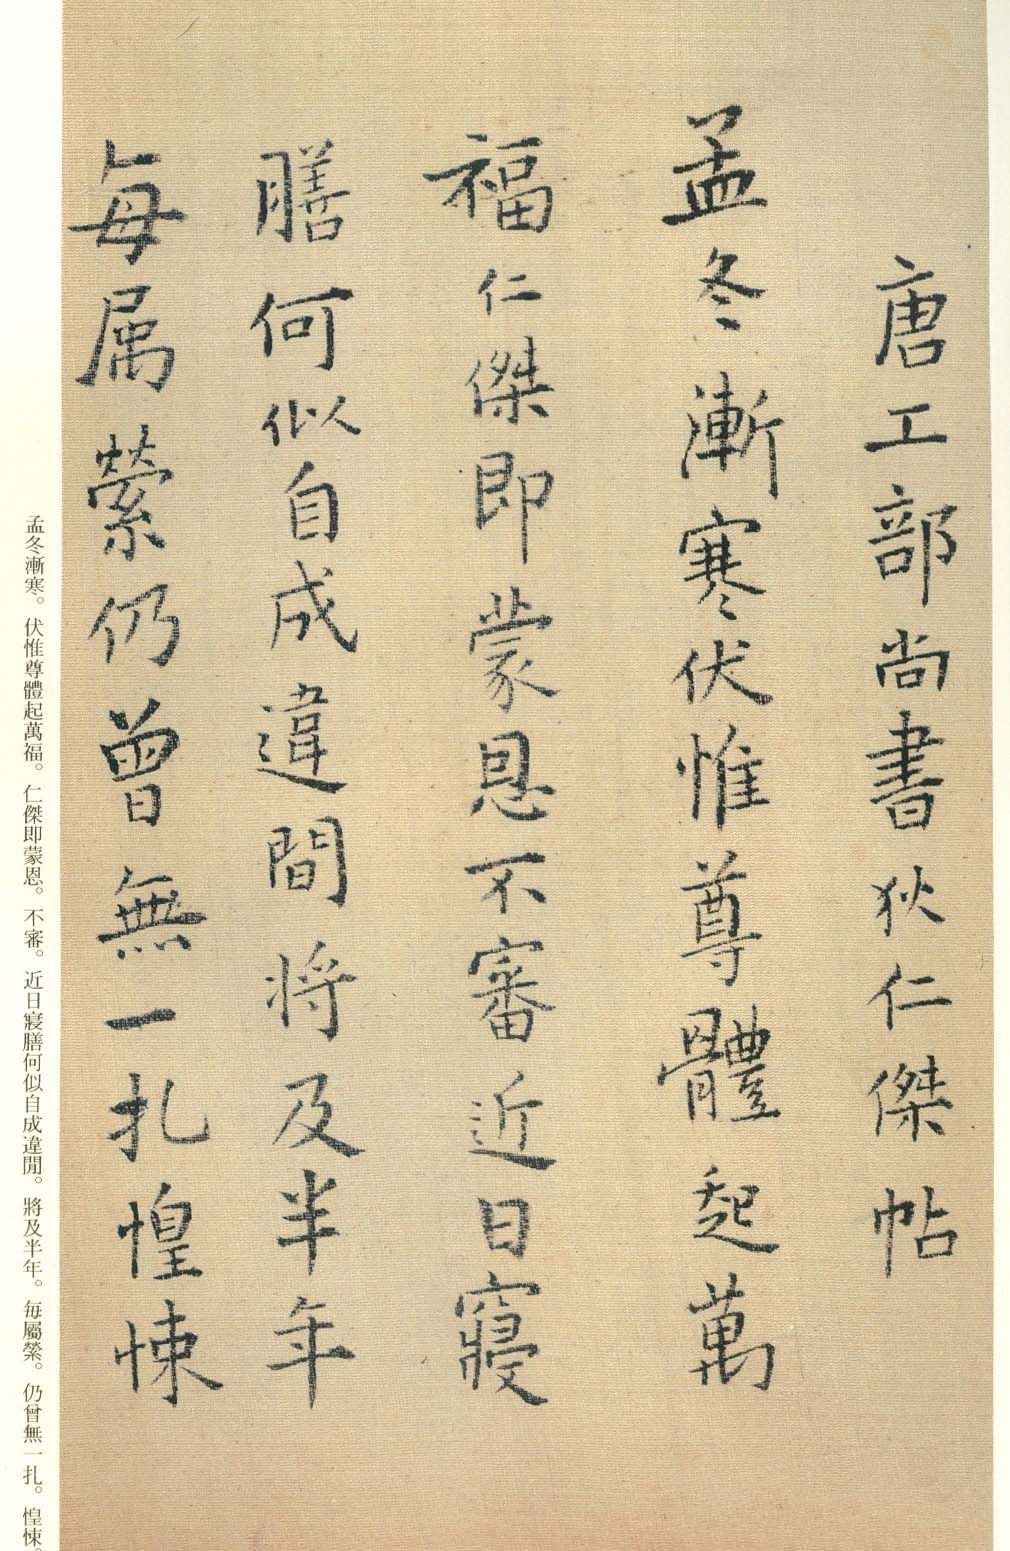 唐工部尚書狄仁傑帖
孟冬漸寒伏惟尊體起萬
福仁傑即蒙恩不審近日寢
膳何似自成違間将及半年
每属縈仍曾無一扎惶悚
孟冬漸寒。伏惟尊體起萬福。仁傑即蒙恩。不審。近日寢膳何似自成違閒。將及半年。每屬縈。仍曾無一扎。惶悚。